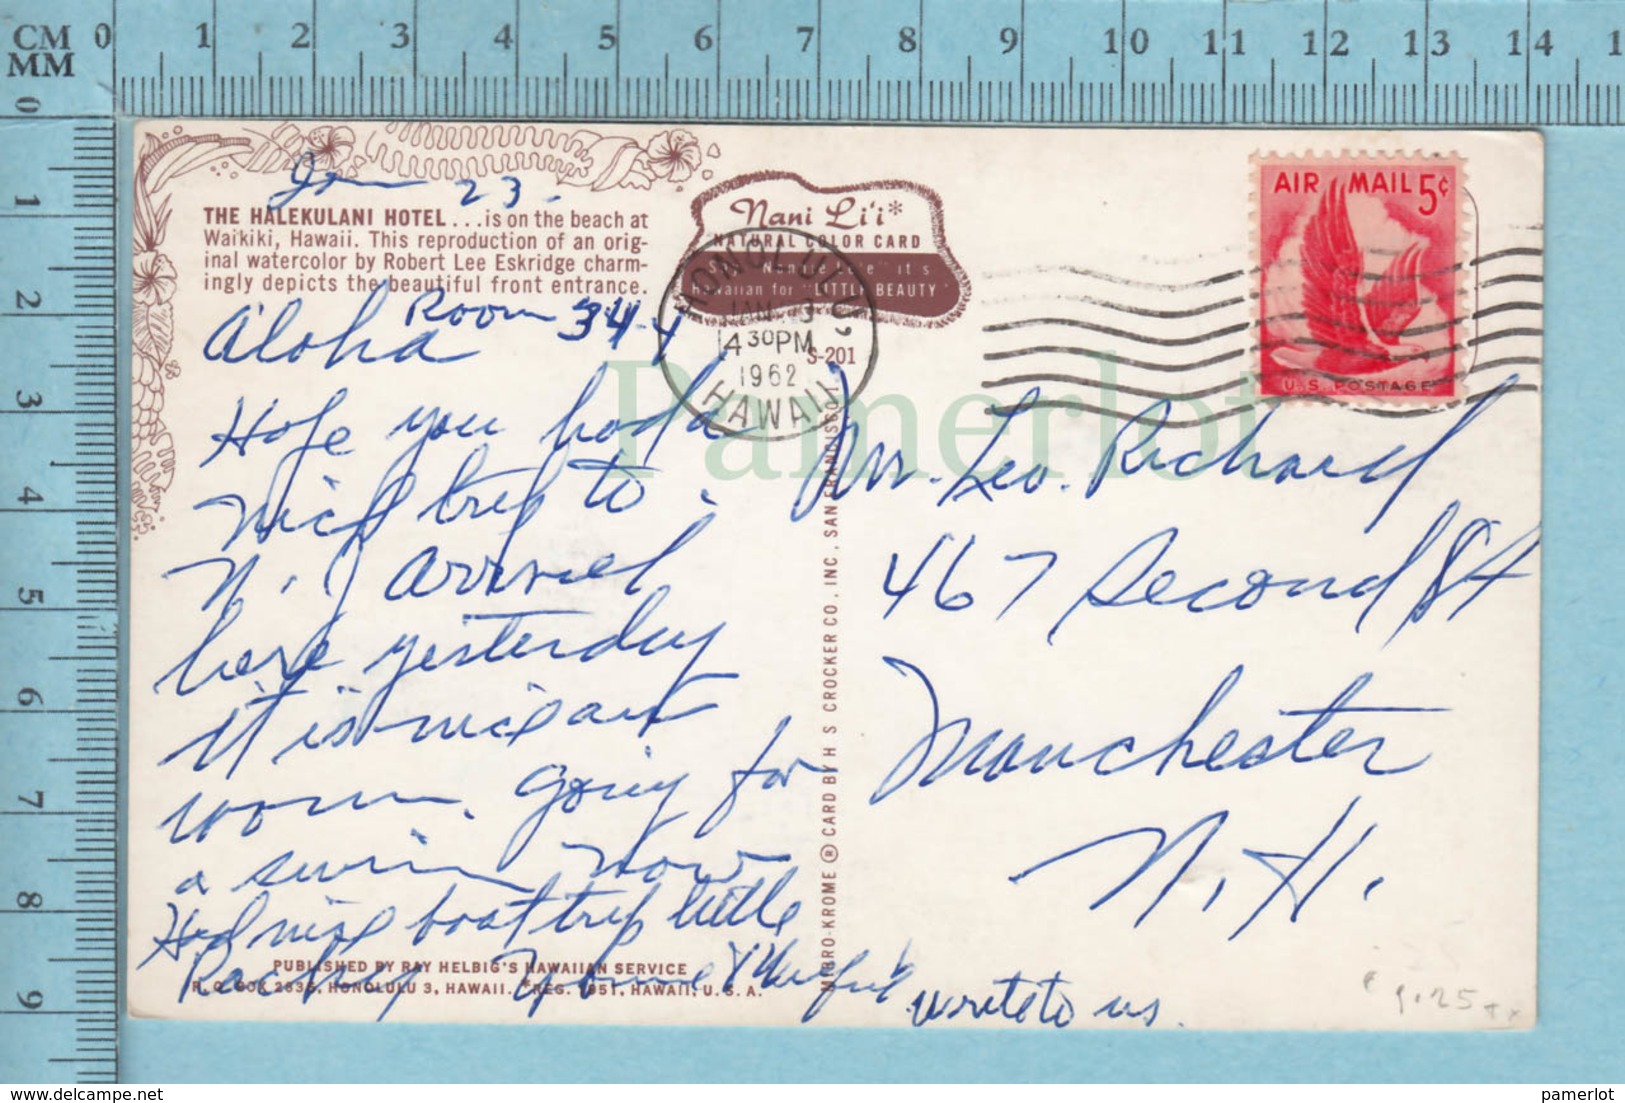 CM 0 1 2 3 4 5 6 7 8 9 10 11 12 13 14 1
MM
0 1 2 3 4 5 6 7 8 9
Jan 23.
THE HALEKULANI HOTEL . . . is on the beach at
Waikiki, Hawaii. This reproduction of an orig-
inal watercolor by Robert Lee Eskridge charm-
ingly depicts the beautiful front entrance.
Nani Li'i*
NATURAL COLOR CARD
Hawaiian for "LITTLE BEAUTY"
S-201
HONOLULU,
JAN 3
4 30 PM
1962
HAWAII
AIR MAIL 5¢
U.S. POSTAGE
Room 344
Aloha
Hope you had a
nice trip to
N. Y arrived
here yesterday
it is nice our
room. going for
a swim now
Had nice boat trip little
Rocky
write to us.
Mr. Leo. Richard
467 Second St
Manchester
N. H.
PUBLISHED BY RAY HELBIG'S HAWAIIAN SERVICE
P. O. BOX 2835, HONOLULU 3, HAWAII. *REG. 1951, HAWAII, U. S. A.
MIRRO-KROME ® CARD BY H S CROCKER CO., INC., SAN FRANCISCO
Pamerlot
pamerlot